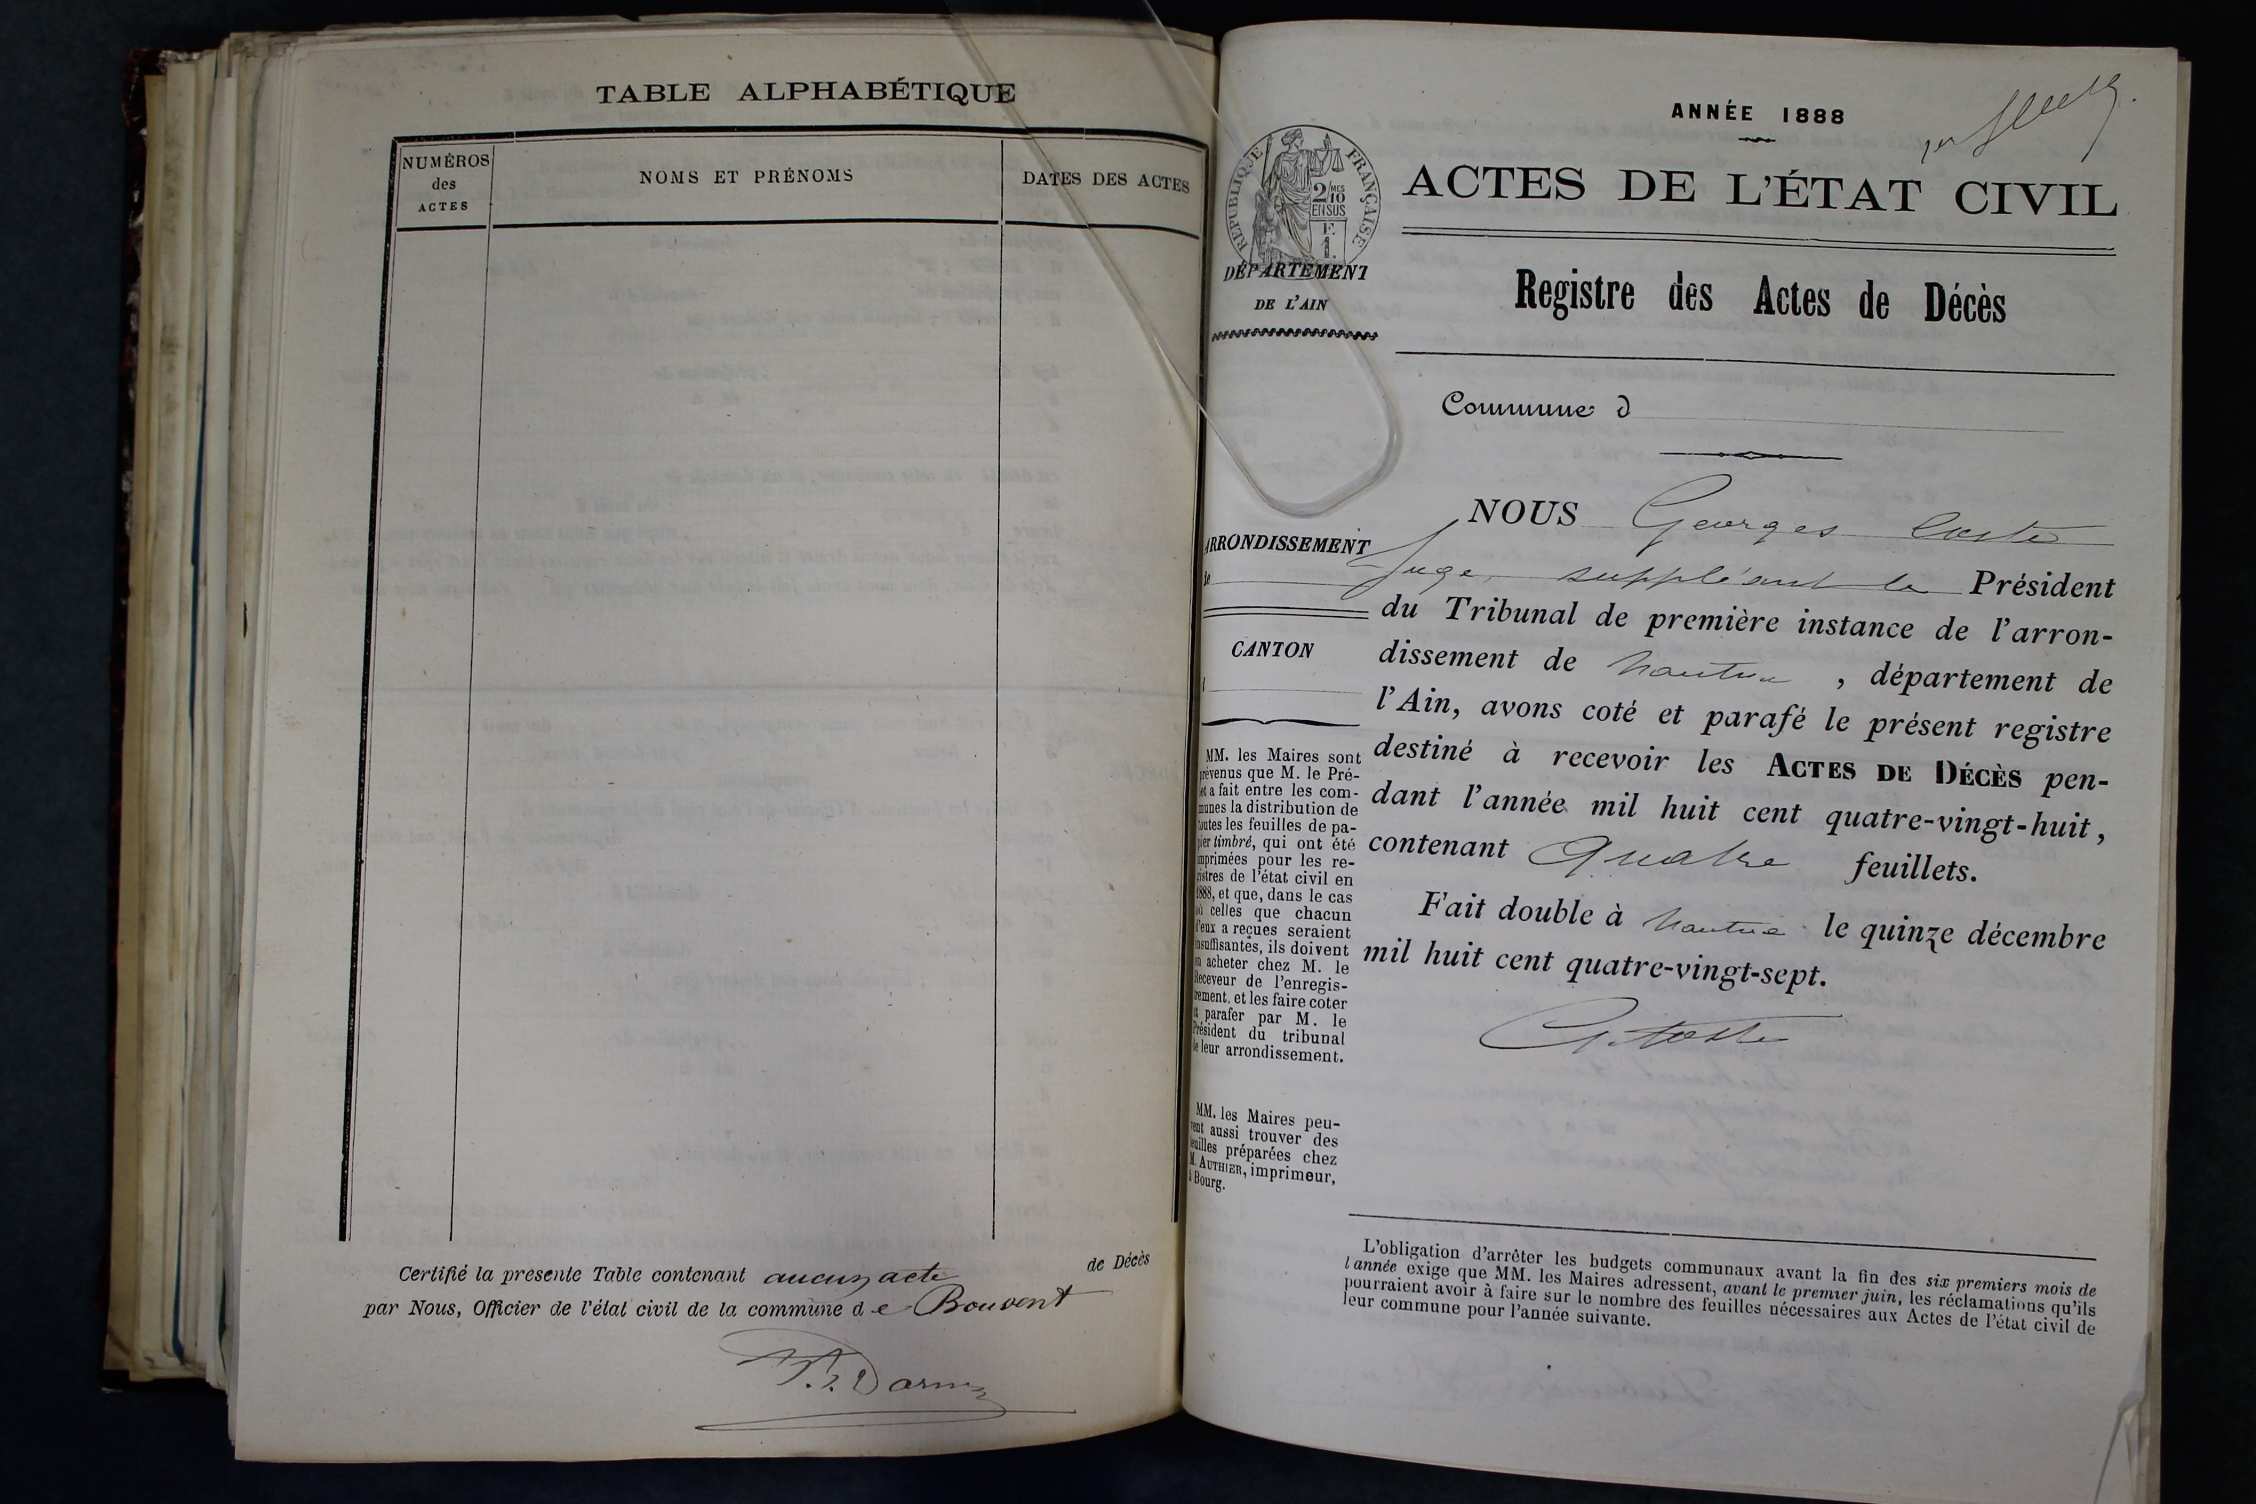 TABLE ALPHABÉTIQUE
NUMÉROS
des
ACTES
NOMS ET PRÉNOMS
DATES DES ACTES
Certifié la présente Table contenant aucun acte de Décès
par Nous, Officier de l'état civil de la commune de Bouvent
ANNÉE 1888
ACTES DE L'ÉTAT CIVIL
RÉPUBLIQUE FRANÇAISE
2/10 MES
EN SUS
F.
1.
DÉPARTEMENT
DE L'AIN
Registre des Actes de Décès
Commune d
ARRONDISSEMENT
de
CANTON
d
NOUS Georges Coste
Juge suppléant le Président
du Tribunal de première instance de l'arron-
dissement de Nantua, département de
l'Ain, avons coté et parafé le présent registre
destiné à recevoir les ACTES DE DÉCÈS pen-
dant l'année mil huit cent quatre-vingt-huit,
contenant Quatre feuillets.
Fait double à Nantua le quinze décembre
mil huit cent quatre-vingt-sept.
G. Coste
MM. les Maires sont
prévenus que M. le Pré-
fet a fait entre les com-
munes la distribution de
toutes les feuilles de pa-
pier timbré, qui ont été
imprimées pour les re-
gistres de l'état civil en
1888, et que, dans le cas
où celles que chacun
d'eux a reçues seraient
insuffisantes, ils doivent
en acheter chez M. le
Receveur de l'enregis-
trement, et les faire coter
et parafer par M. le
Président du tribunal
de leur arrondissement.
MM. les Maires peu-
vent aussi trouver des
feuilles préparées chez
M. AUTHIER, imprimeur,
à Bourg.
L'obligation d'arrêter les budgets communaux avant la fin des six premiers mois de
l'année exige que MM. les Maires adressent, avant le premier juin, les réclamations qu'ils
pourraient avoir à faire sur le nombre des feuilles nécessaires aux Actes de l'état civil de
leur commune pour l'année suivante.